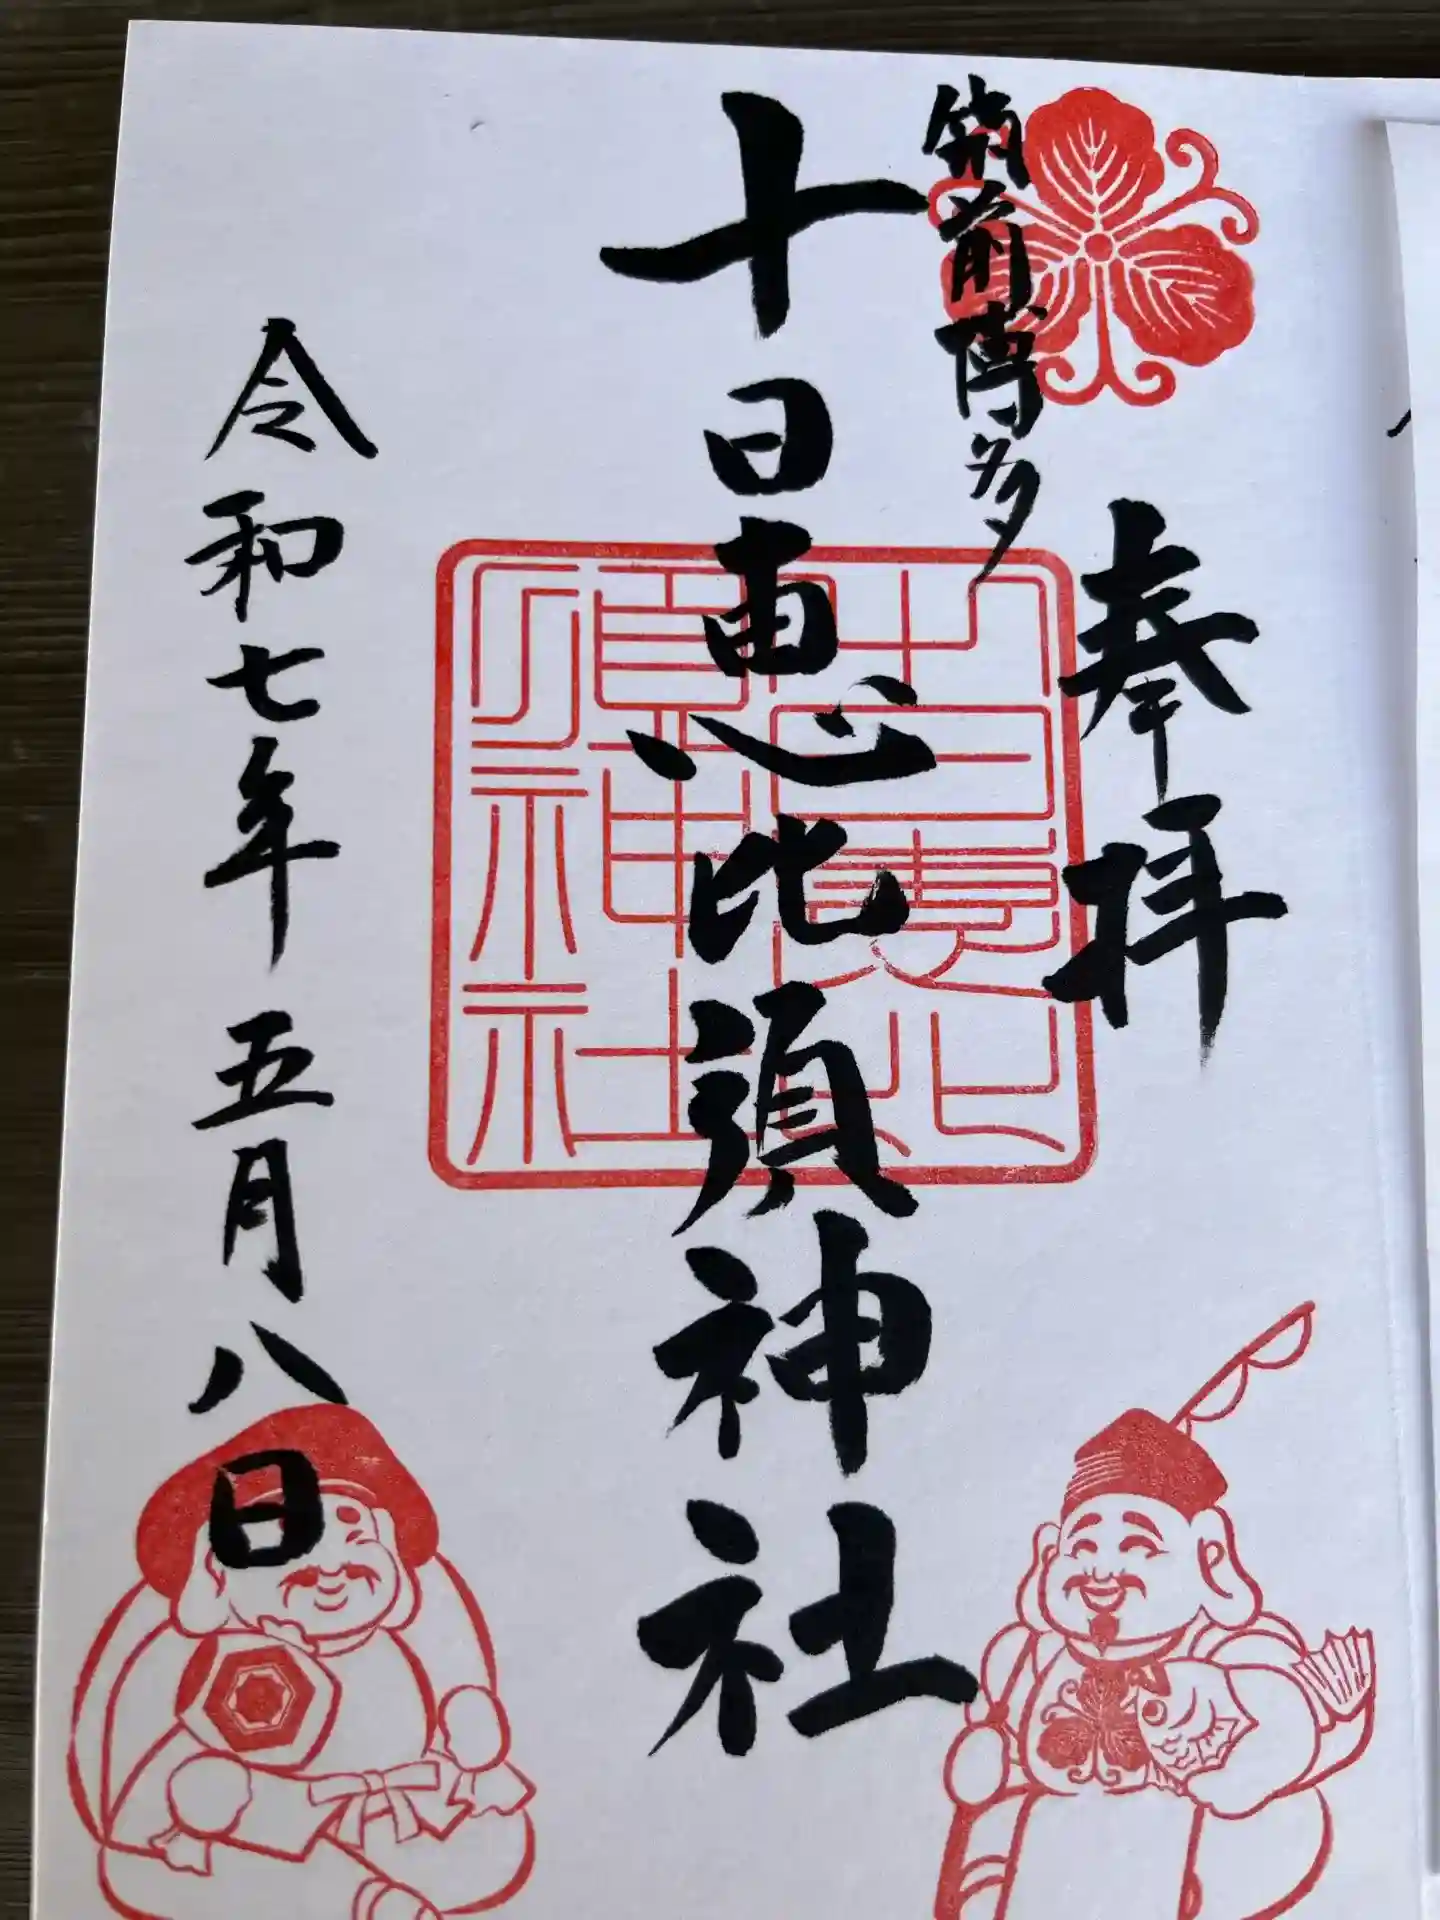 奉拝
筑前博多
十日恵比須神社
十日恵比須神社
令和七年五月八日